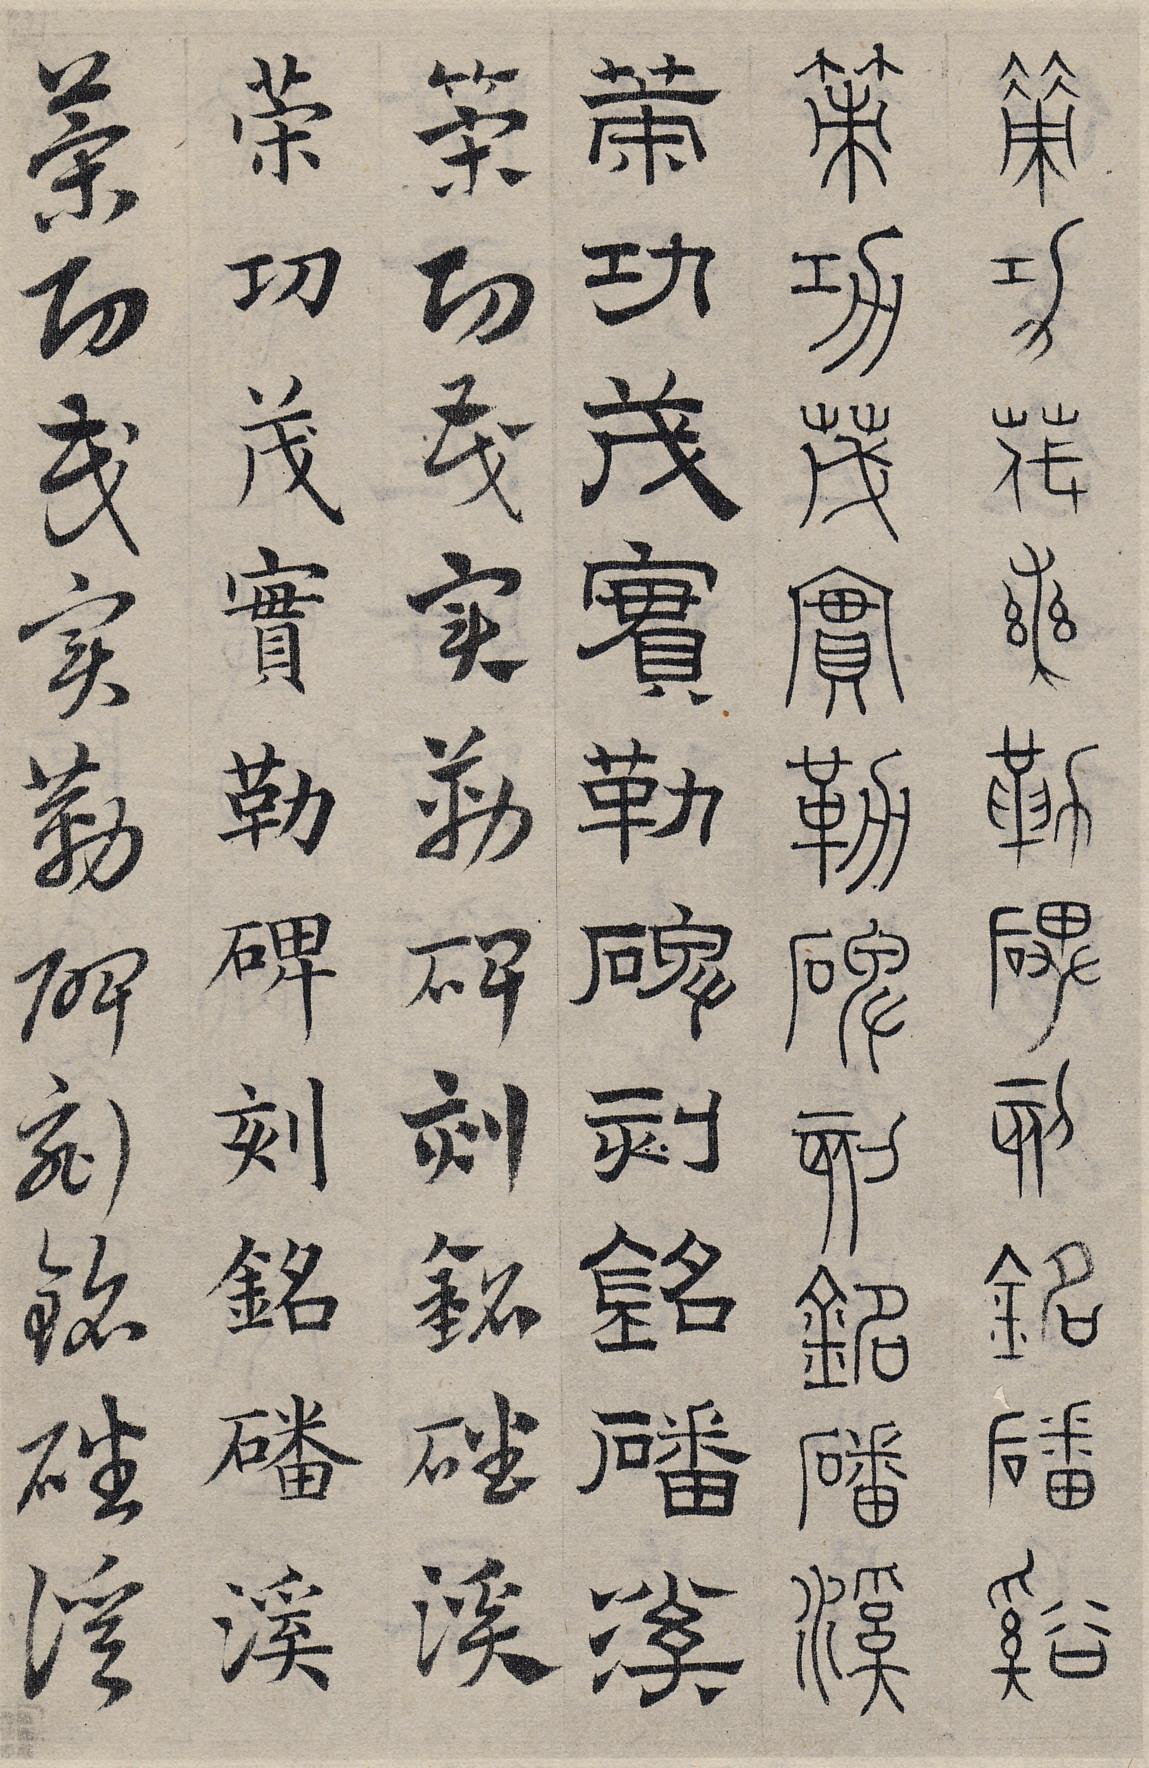 策功茂實勒碑刻銘磻谿
策功茂實勒碑刻銘磻溪
策功茂實勒碑刻銘磻溪
策功茂实勒碑刻銘磻溪
策功茂實勒碑刻銘磻溪
策功茂实勒碑刻銘磻溪